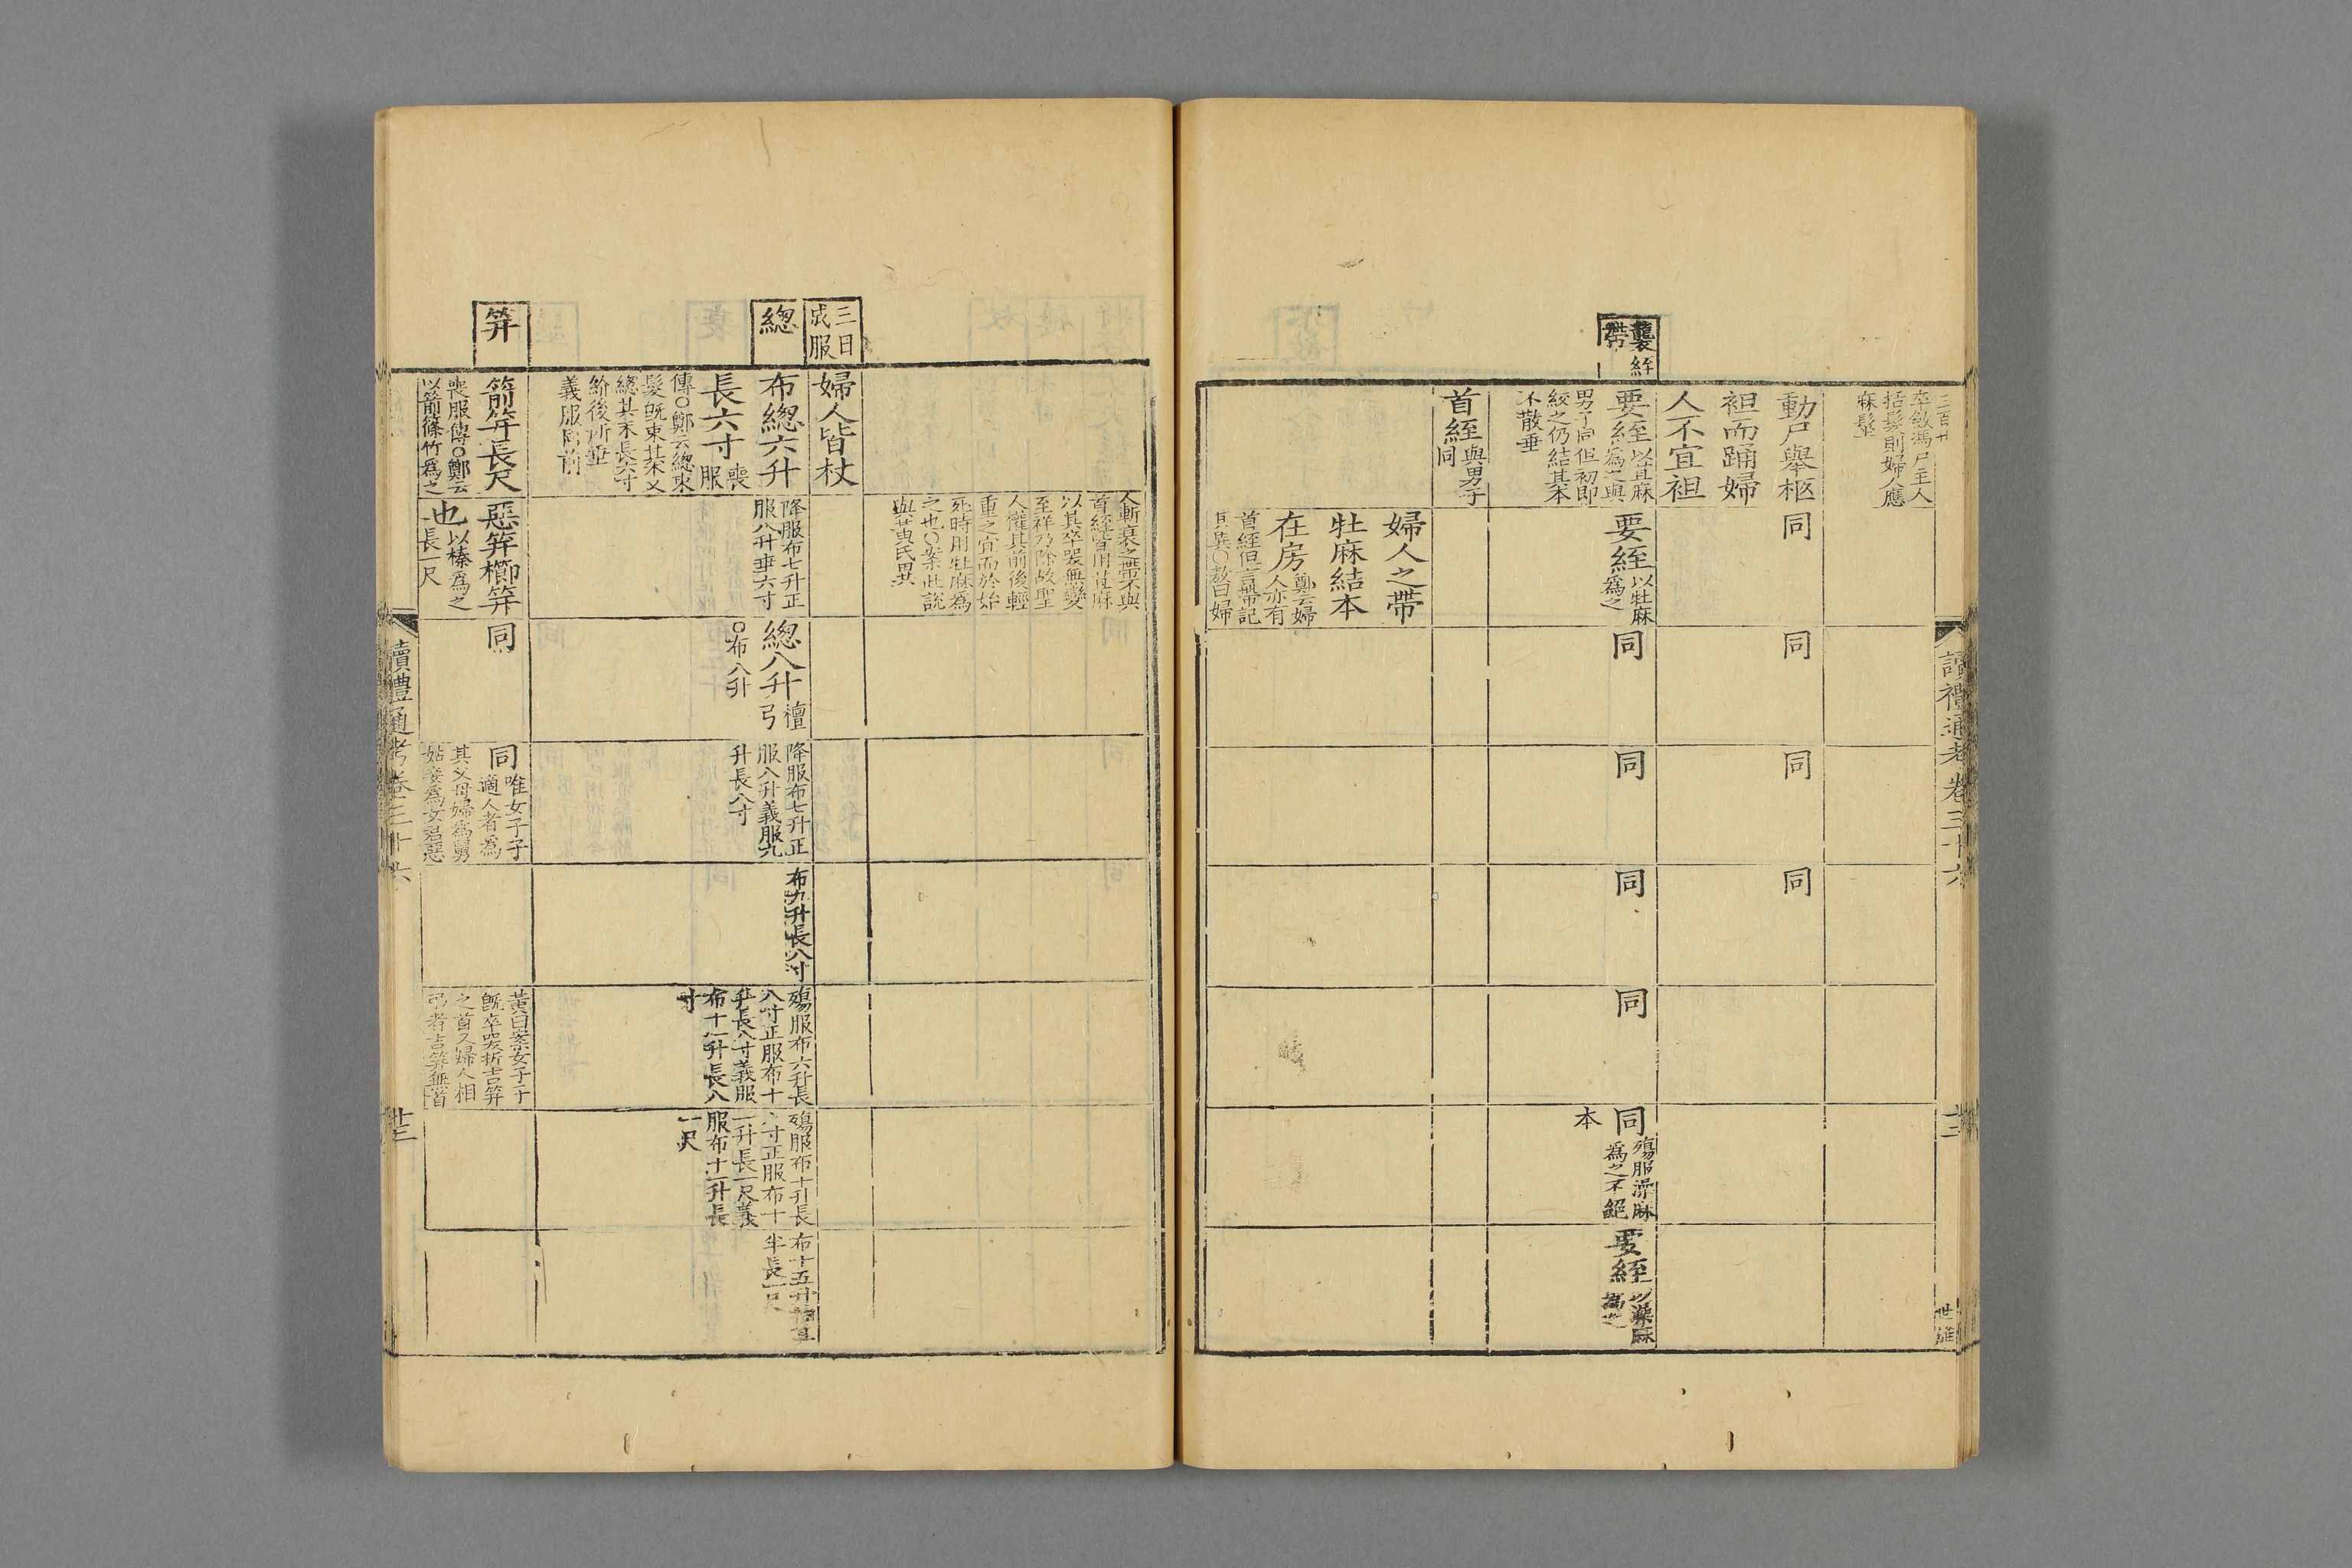 襲絰
帶
卒斂馮尸主人
括髮則婦人應
麻髽
動尸舉柩
袒而踊婦
人不宜袒
同
同
同
同
要絰以苴麻
爲之與
男子同但初即
絞之仍結其本
不散垂
要絰以牡麻
爲之
同
同
同
同
同殤服澡麻
爲之不絕
本
要絰以澡麻
爲之
首絰與男子
同
婦人之帶
牡麻結本
在房鄭云婦
人亦有
首絰但言帶記
其異〇敖曰婦
讀禮通考卷三十六
人斬衰之帶不與
首絰皆用苴麻
以其卒哭無變
至祥乃除故聖
人權其前後輕
重之宜而於始
死時用牡麻爲
之也〇案此說
與黃氏異
三日
成服
婦人皆杖
總
布總六升
長六寸喪
服
傳〇鄭云總束
髮既束其本又
總其末長六寸
紒後所垂
義服同前
降服布七升正
服八升垂六寸
總八升檀
弓
〇布八升
降服布七升正
服八升義服九
升長八寸
布九升長八寸
殤服布六升長
八寸正服布十
升長八寸義服
布十一升長八
寸
殤服布十升長
八寸正服布十
一升長一尺義
服布十二升長
一尺
布十五升抽其
半長一尺
笄
箭笄長尺
喪服傳〇鄭云
以箭篠竹爲之
惡笄櫛笄
也以榛爲之
長一尺
同
同唯女子子
適人者爲
其父母婦爲舅
姑妾爲女君惡
黃曰案女子子
既卒哭折吉笄
之首又婦人相
弔者吉笄無首
讀禮通考卷三十六